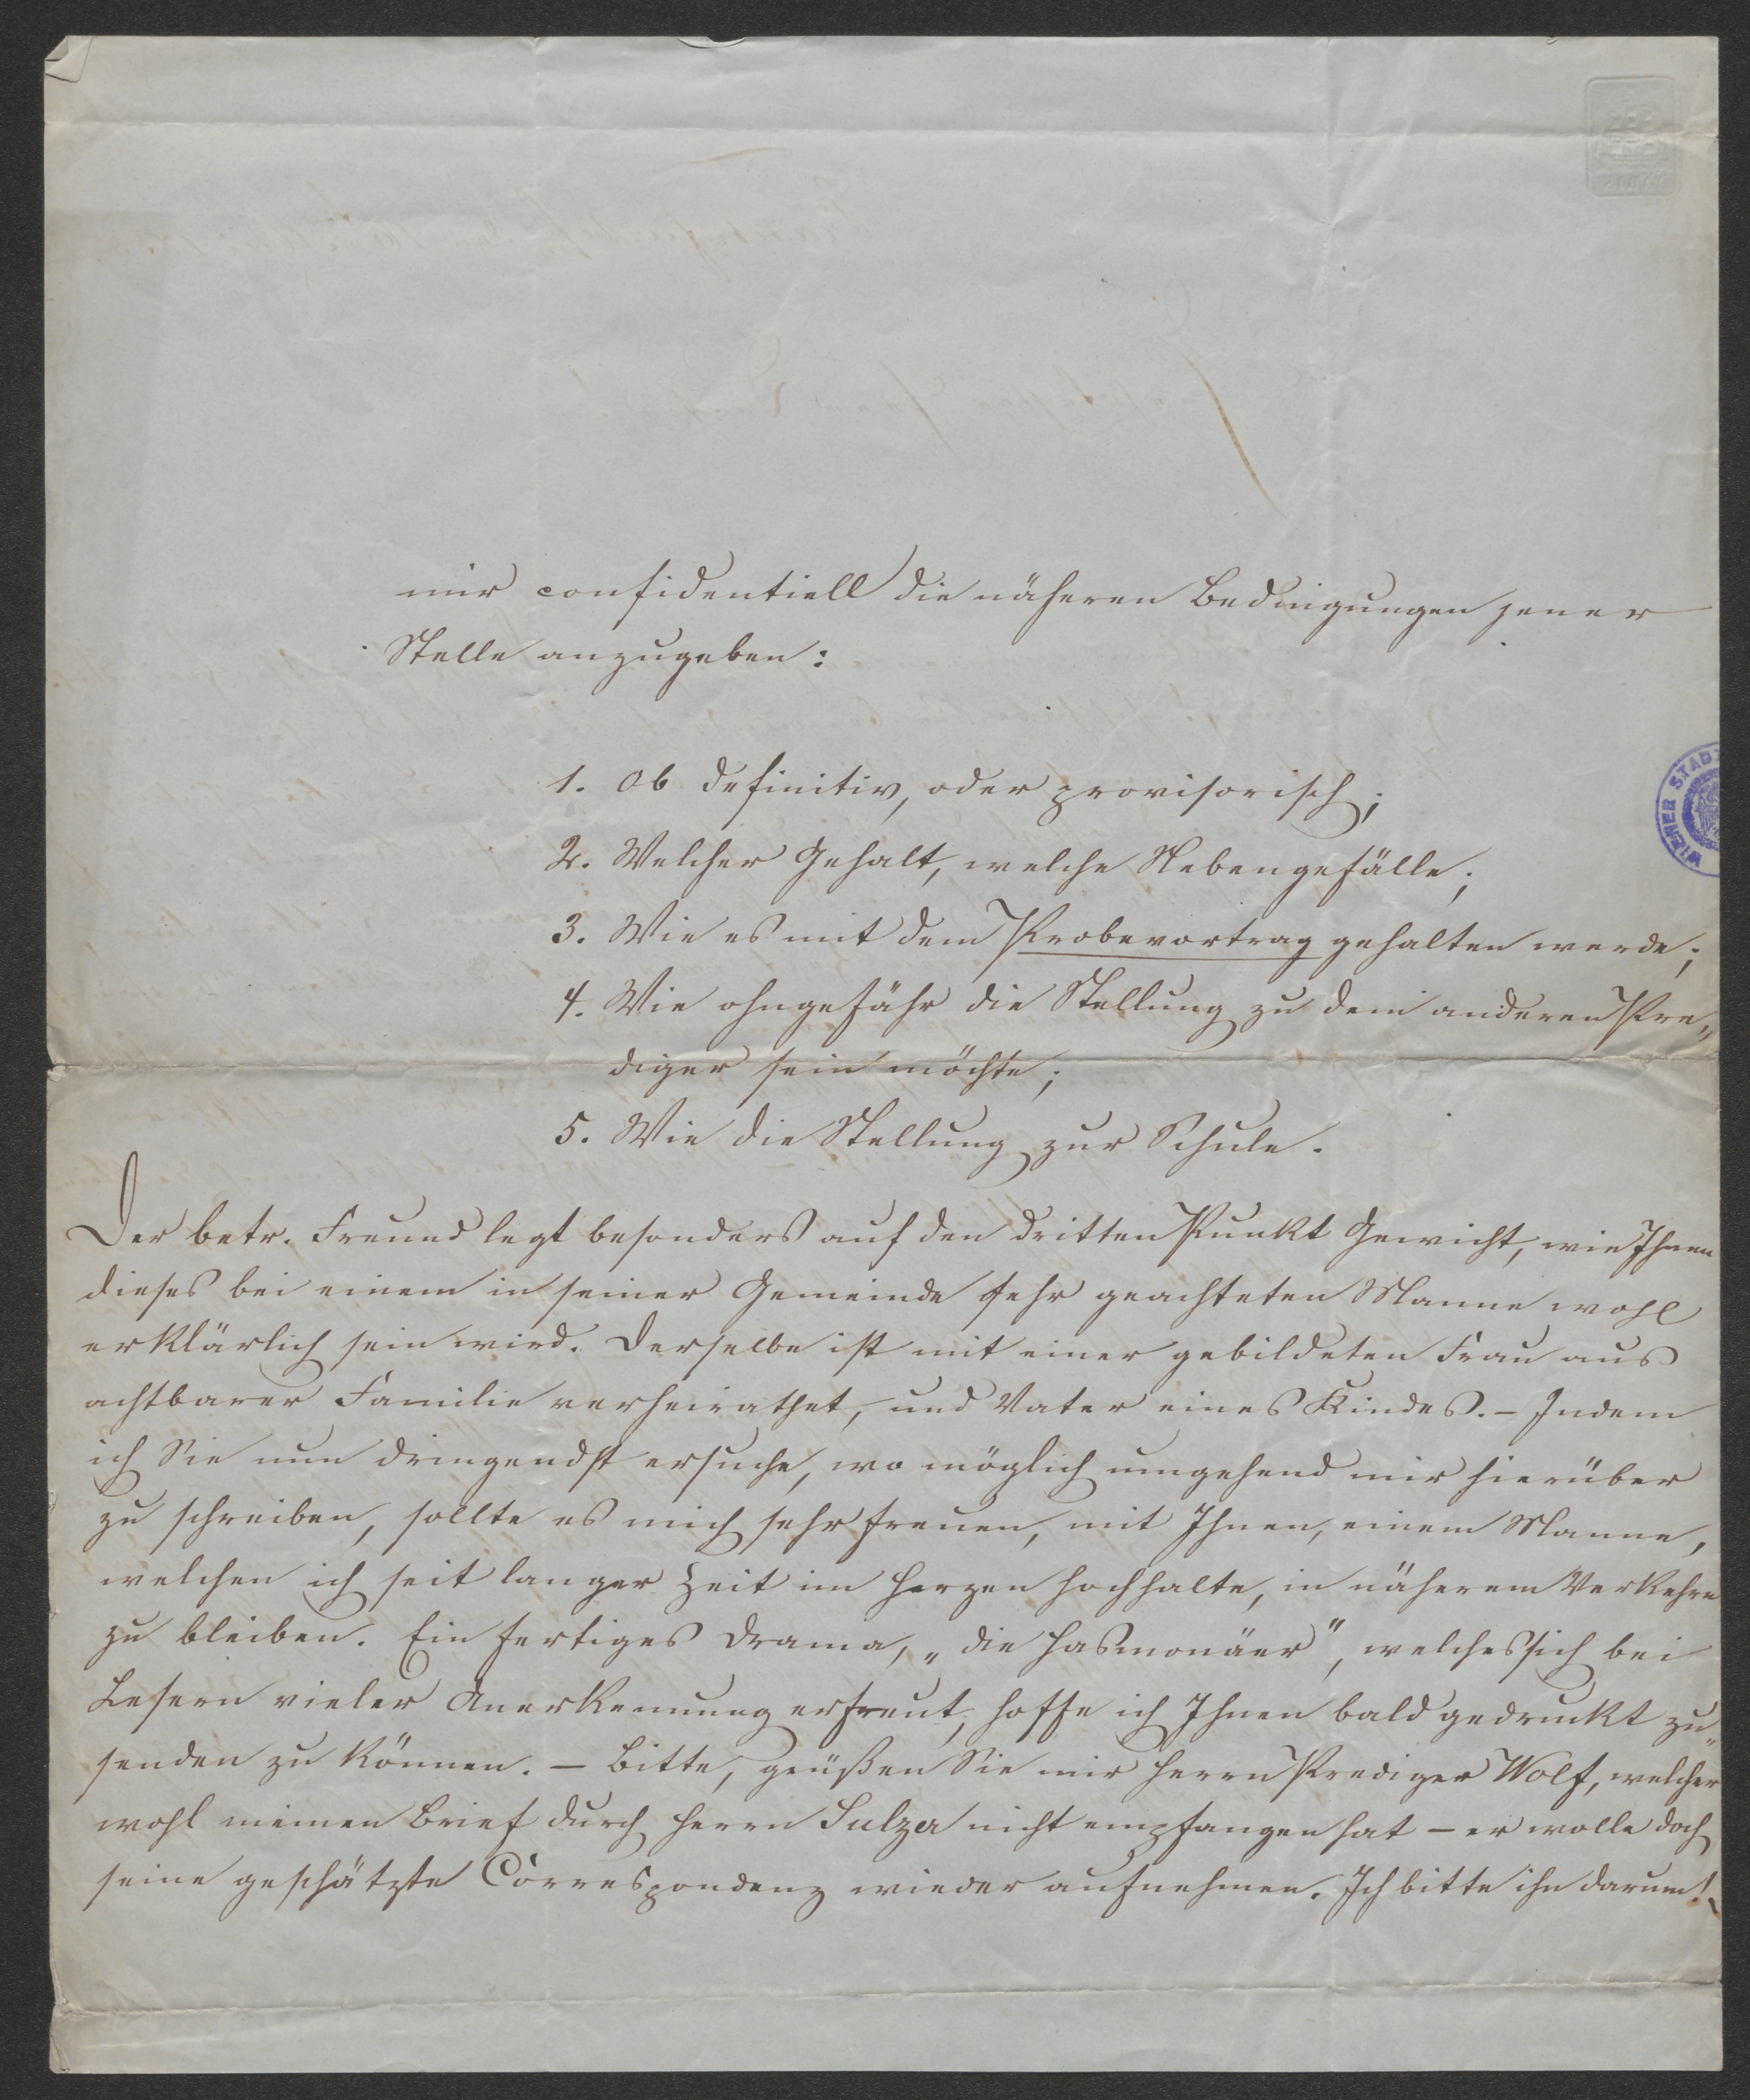 mir confidentiell die näheren Bedingungen jener
Stelle anzugeben:
1. Ob definitiv, oder provisorisch;
2. Welcher Gehalt, welche Nebengefälle;
3. Wie es mit dem Probevortrag gehalten werde;
4. Wie ohngefähr die Stellung zu dem anderen Pre„
diger sein möchte;
5. Wie die Stellung zur Schule.
Der betr. Freund legt besonders auf den dritten Punkt Gewicht, wie Ihnen
dieses bei einem in seiner Gemeinde sehr geachteten Manne wohl
erklärlich sein wird. Derselbe ist mit einer gebildeten Frau aus
achtbarer Familie verheirathet, und Vater eines Kindes. – Indem
ich Sie nun dringendst ersuche, wo möglich umgehend mir hierüber
zu schreiben, sollte es mich sehr freuen, mit Ihnen, einem Manne,
welchen ich seit langer Zeit im Herzen hochhalte, in näherem Verkehre
zu bleiben. Ein fertiges Drama, „die Hasmonäer", welches sich bei
Lesern vieler Anerkennung erfreut, hoffe ich Ihnen bald gedruckt zu„
senden zu können. – Bitte, grüßen Sie mir Herrn Prediger Wolf, welcher
wohl meinen Brief durch Herrn Sulzer nicht empfangen hat – er wolle doch
seine geschätzte Correspondenz wieder aufnehmen. Ich bitte ihn darum!
WIENER STAD